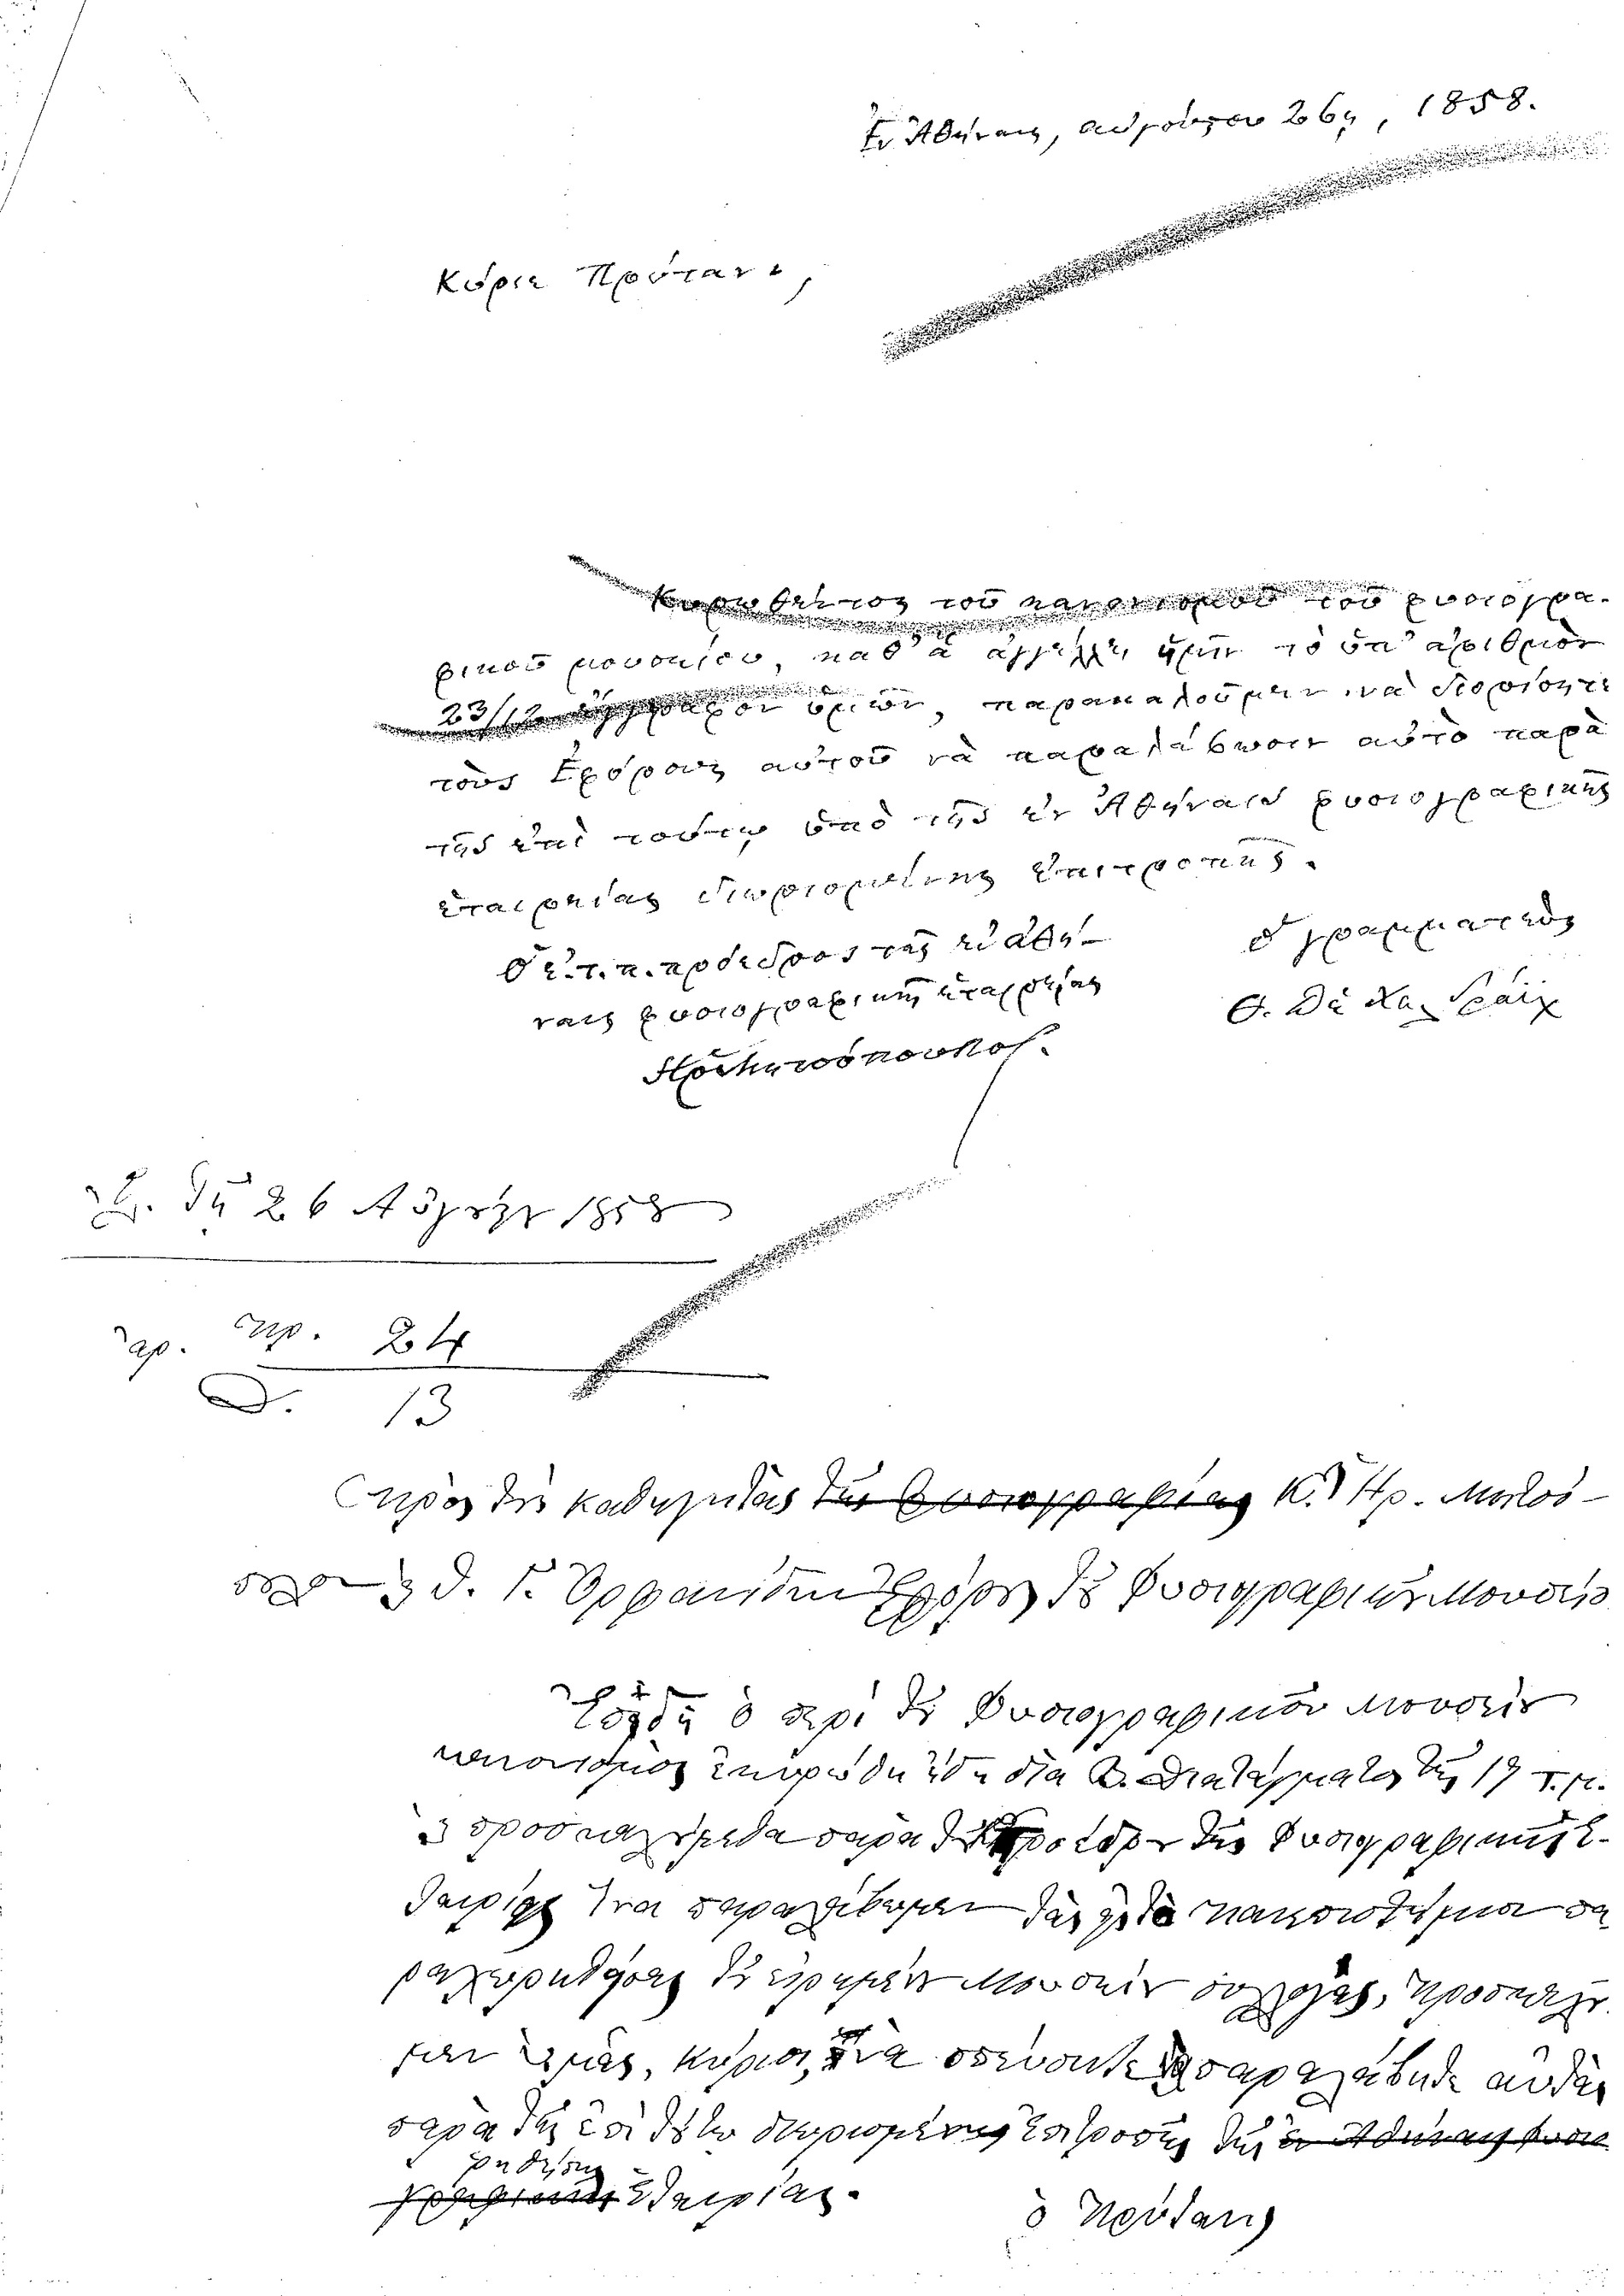 Ἐν Ἀθήναις, αὐγούστου 26ῃ, 1858.
Κύριε Πρύτανι,
Κυρωθέντος τοῦ κανονισμοῦ τοῦ φυσιογρα-
φικοῦ μουσείου, καθ' ἃ ἀγγέλλει ἡμῖν τὸ ὑπ' ἀριθμὸν
23/12 ἔγγραφον ὑμῶν, παρακαλοῦμεν ἵνα διορίσητε
τοὺς Ἐφόρους αὐτοῦ νὰ παραλάβωσιν αὐτὸ παρὰ
τῆς ἐπὶ τούτῳ ὑπὸ τῆς ἐν Ἀθήναις φυσιογραφικῆς
ἑταιρείας διωρισμένης ἐπιτροπῆς.
Ὁ ἐ.τ.π. πρόεδρος τῆς ἐν Ἀθή-
ναις φυσιογραφικῆς ἑταιρείας
ὁ γραμματεὺς
Τῇ 26 Αὐγούστ 1858
ἀρ. πρ. 24
Δ. 13
Πρὸς τοὺς καθηγητὰς τῆς Φυσιογραφίας Κ. Ἡρ. Μητσό-
πουλον καὶ Θ. Γ. Ὀρφανίδην Ἐφόρους τοῦ Φυσιογραφικοῦ Μουσείου
Ἐπειδὴ ὁ περὶ τοῦ Φυσιογραφικοῦ Μουσείου
κανονισμὸς ἐκυρώθη ἤδη διὰ Β. Διατάγματος τῆς 19 τ.μ.
καὶ προσκαλούμεθα παρὰ τοῦ Προέδρου τῆς Φυσιογραφικῆς Ἑ-
ταιρίας ἵνα παραλάβωμεν τὰς εἰς τὸ Πανεπιστήμιον πα-
ραχωρηθείσας τοῦ εἰρημένου Μουσείου συλλογάς, προσκαλοῦ-
μεν ὑμᾶς, κύριοι, ἵνα παραλάβητε αὐτὰς
παρὰ τῆς ἐπὶ τούτῳ διωρισμένης ἐπιτροπῆς τῆς ἐν Ἀθήναις φυσιο
ῥηθείσης
γραφικῆς Ἑταιρίας.
ὁ Πρύτανις